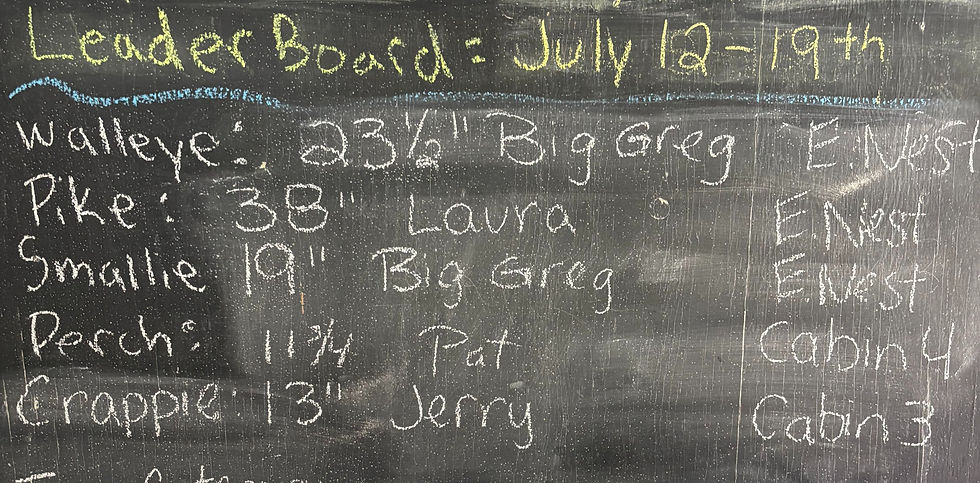 Leader Board: July 12-19th
Walleye: 23½" Big Greg E.Nest
Pike: 38" Laura E.Nest
Smallie 19" Big Greg E.Nest
Perch: 11 3/4 Pat Cabin 4
Crappie: 13" Jerry Cabin 3